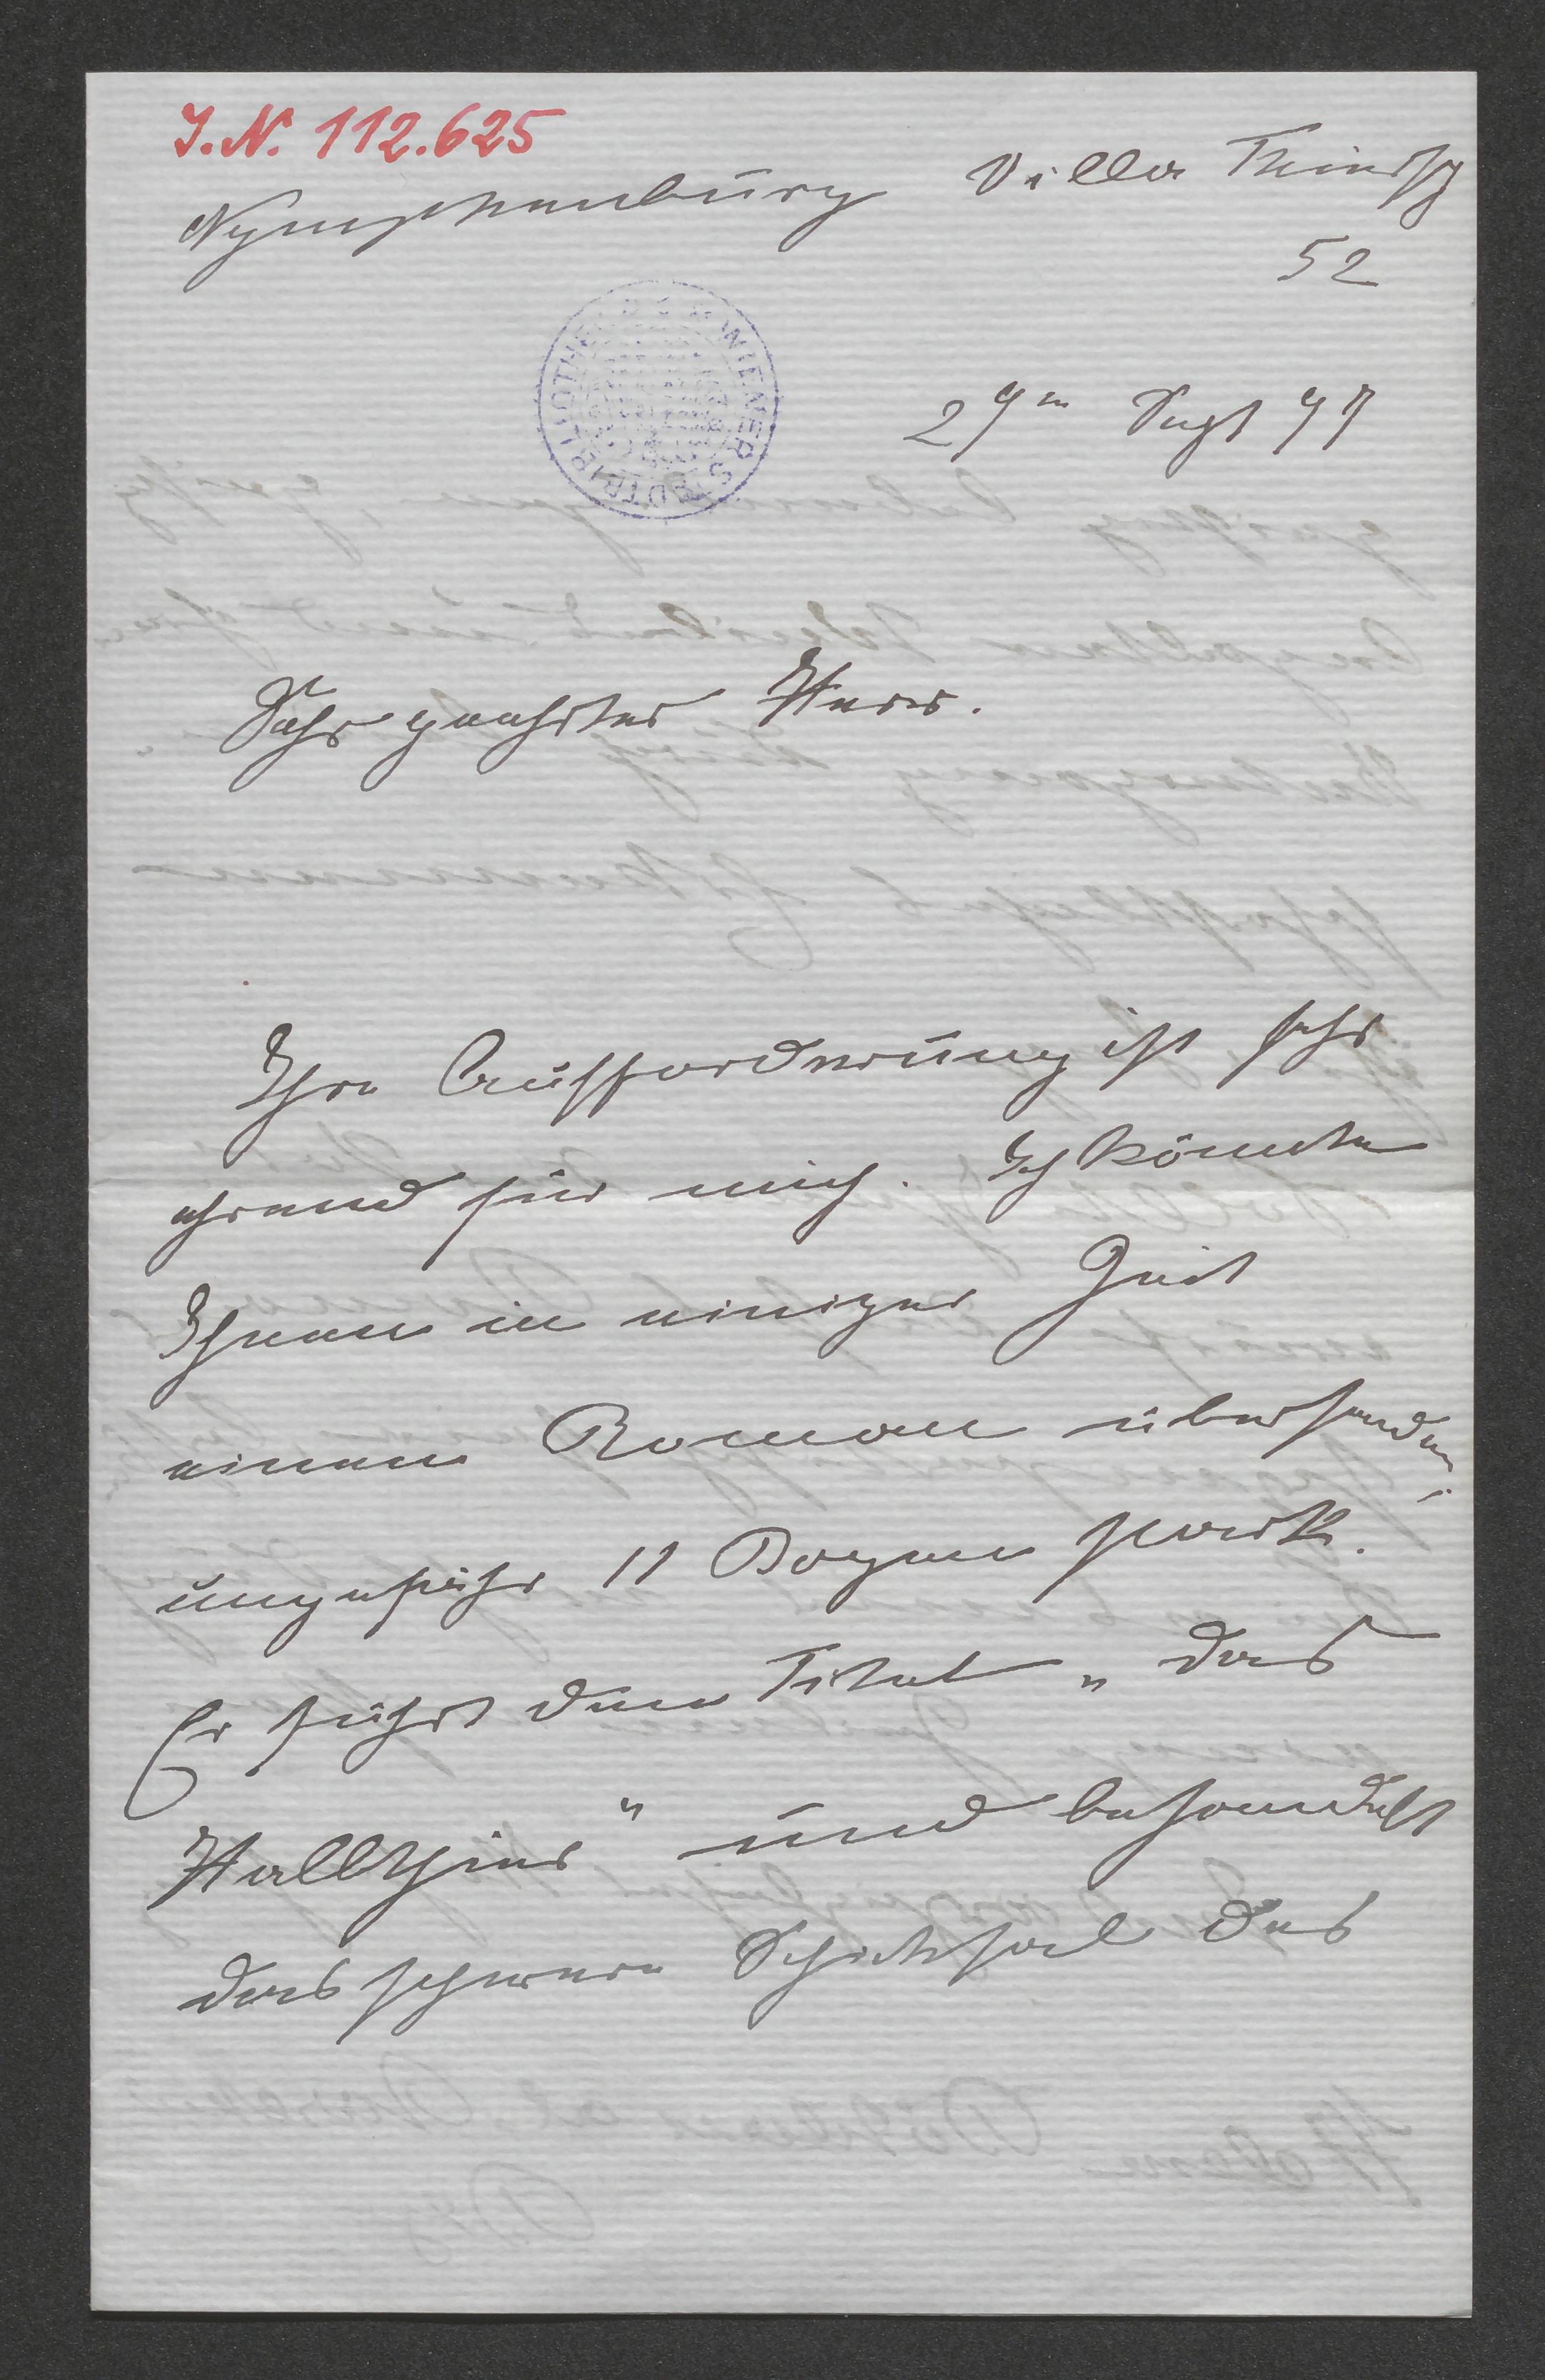 I.N. 112.625
Nymphenburg Villa
52
WIENER STADTBIBLIOTHEK
29ten Sept 97
Sehr geehrter Herr.
Ihre Aufforderung ist sehr
ehrend für mich. Ich könnte
Ihnen in einiger Zeit
einen Roman übersenden,
ungefähr 11 Bogen stark.
Er führt den Titel „Das
Halbthier" und behandelt
das schwere Schicksal des